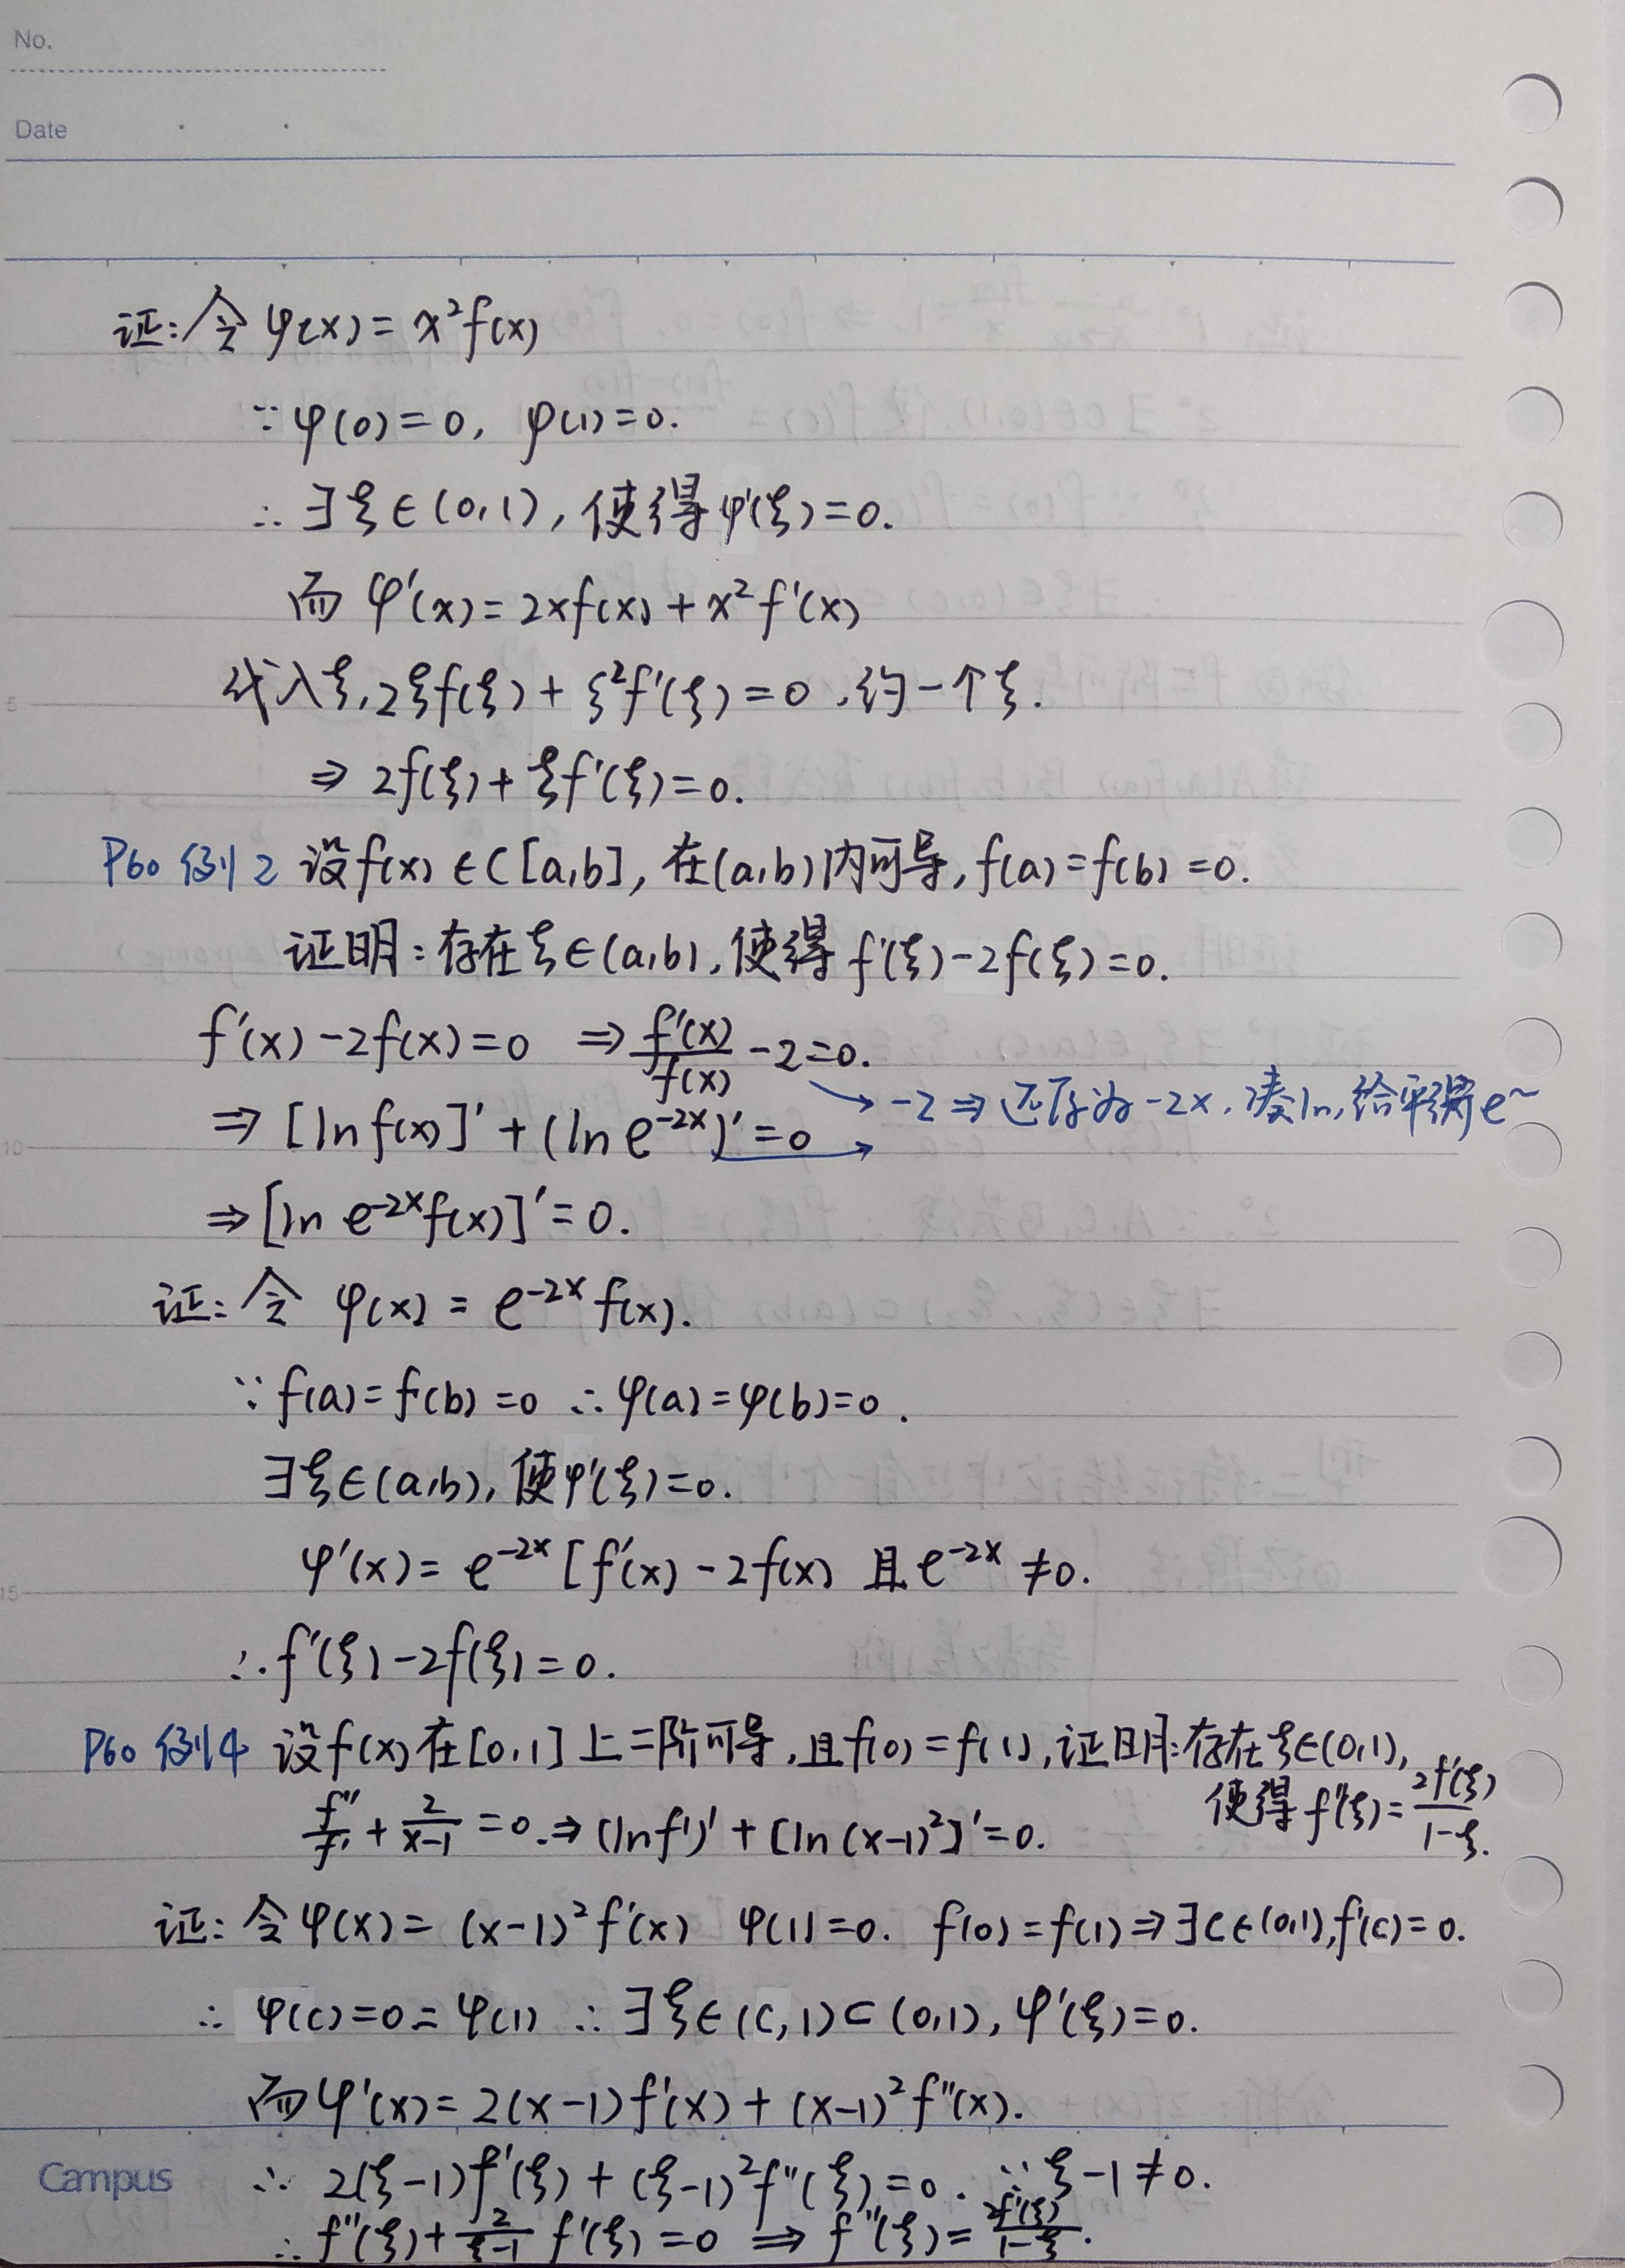 No.
Date
证:令 φ(x) = x²f(x)
∵ φ(0) = 0, φ(1) = 0.
∴ ∃ξ∈(0,1), 使得φ'(ξ) = 0.
而 φ'(x) = 2xf(x) + x²f'(x)
代入ξ, 2ξf(ξ) + ξ²f'(ξ) = 0, 约一个ξ.
⇒ 2f(ξ) + ξf'(ξ) = 0.
P60 例2 设f(x)∈C[a,b], 在(a,b)内可导, f(a) = f(b) = 0.
证明: 存在ξ∈(a,b), 使得 f'(ξ) - 2f(ξ) = 0.
f'(x) - 2f(x) = 0 ⇒ f'(x)/f(x) - 2 = 0.
→ -2 ⇒ 还原为 -2x, 凑ln, 给平得e~
⇒ [ln f(x)]' + (ln e^{-2x})' = 0 →
⇒ [ln e^{-2x}f(x)]' = 0.
证: 令 φ(x) = e^{-2x} f(x).
∵ f(a) = f(b) = 0 ∴ φ(a) = φ(b) = 0.
∃ξ∈(a,b), 使φ'(ξ) = 0.
φ'(x) = e^{-2x} [f'(x) - 2f(x) 且 e^{-2x} ≠ 0.
∴ f'(ξ) - 2f(ξ) = 0.
P60 例4 设f(x)在[0,1]上二阶可导, 且f(0) = f(1), 证明: 存在ξ∈(0,1),
使得f''(ξ) = 2f'(ξ)/(1-ξ).
f''/f' + 2/(x-1) = 0. ⇒ (ln f')' + [ln (x-1)²]' = 0.
证: 令φ(x) = (x-1)² f'(x) φ(1) = 0. f(0) = f(1) ⇒ ∃c∈(0,1), f'(c) = 0.
∴ φ(c) = 0 = φ(1) ∴ ∃ξ∈(c,1)⊂(0,1), φ'(ξ) = 0.
而φ'(x) = 2(x-1)f'(x) + (x-1)²f''(x).
∴ 2(ξ-1)f'(ξ) + (ξ-1)²f''(ξ) = 0. ∵ ξ-1 ≠ 0.
∴ f''(ξ) + 2/(ξ-1) f'(ξ) = 0 ⇒ f''(ξ) = 2f'(ξ)/(1-ξ).
Campus
5
10
15